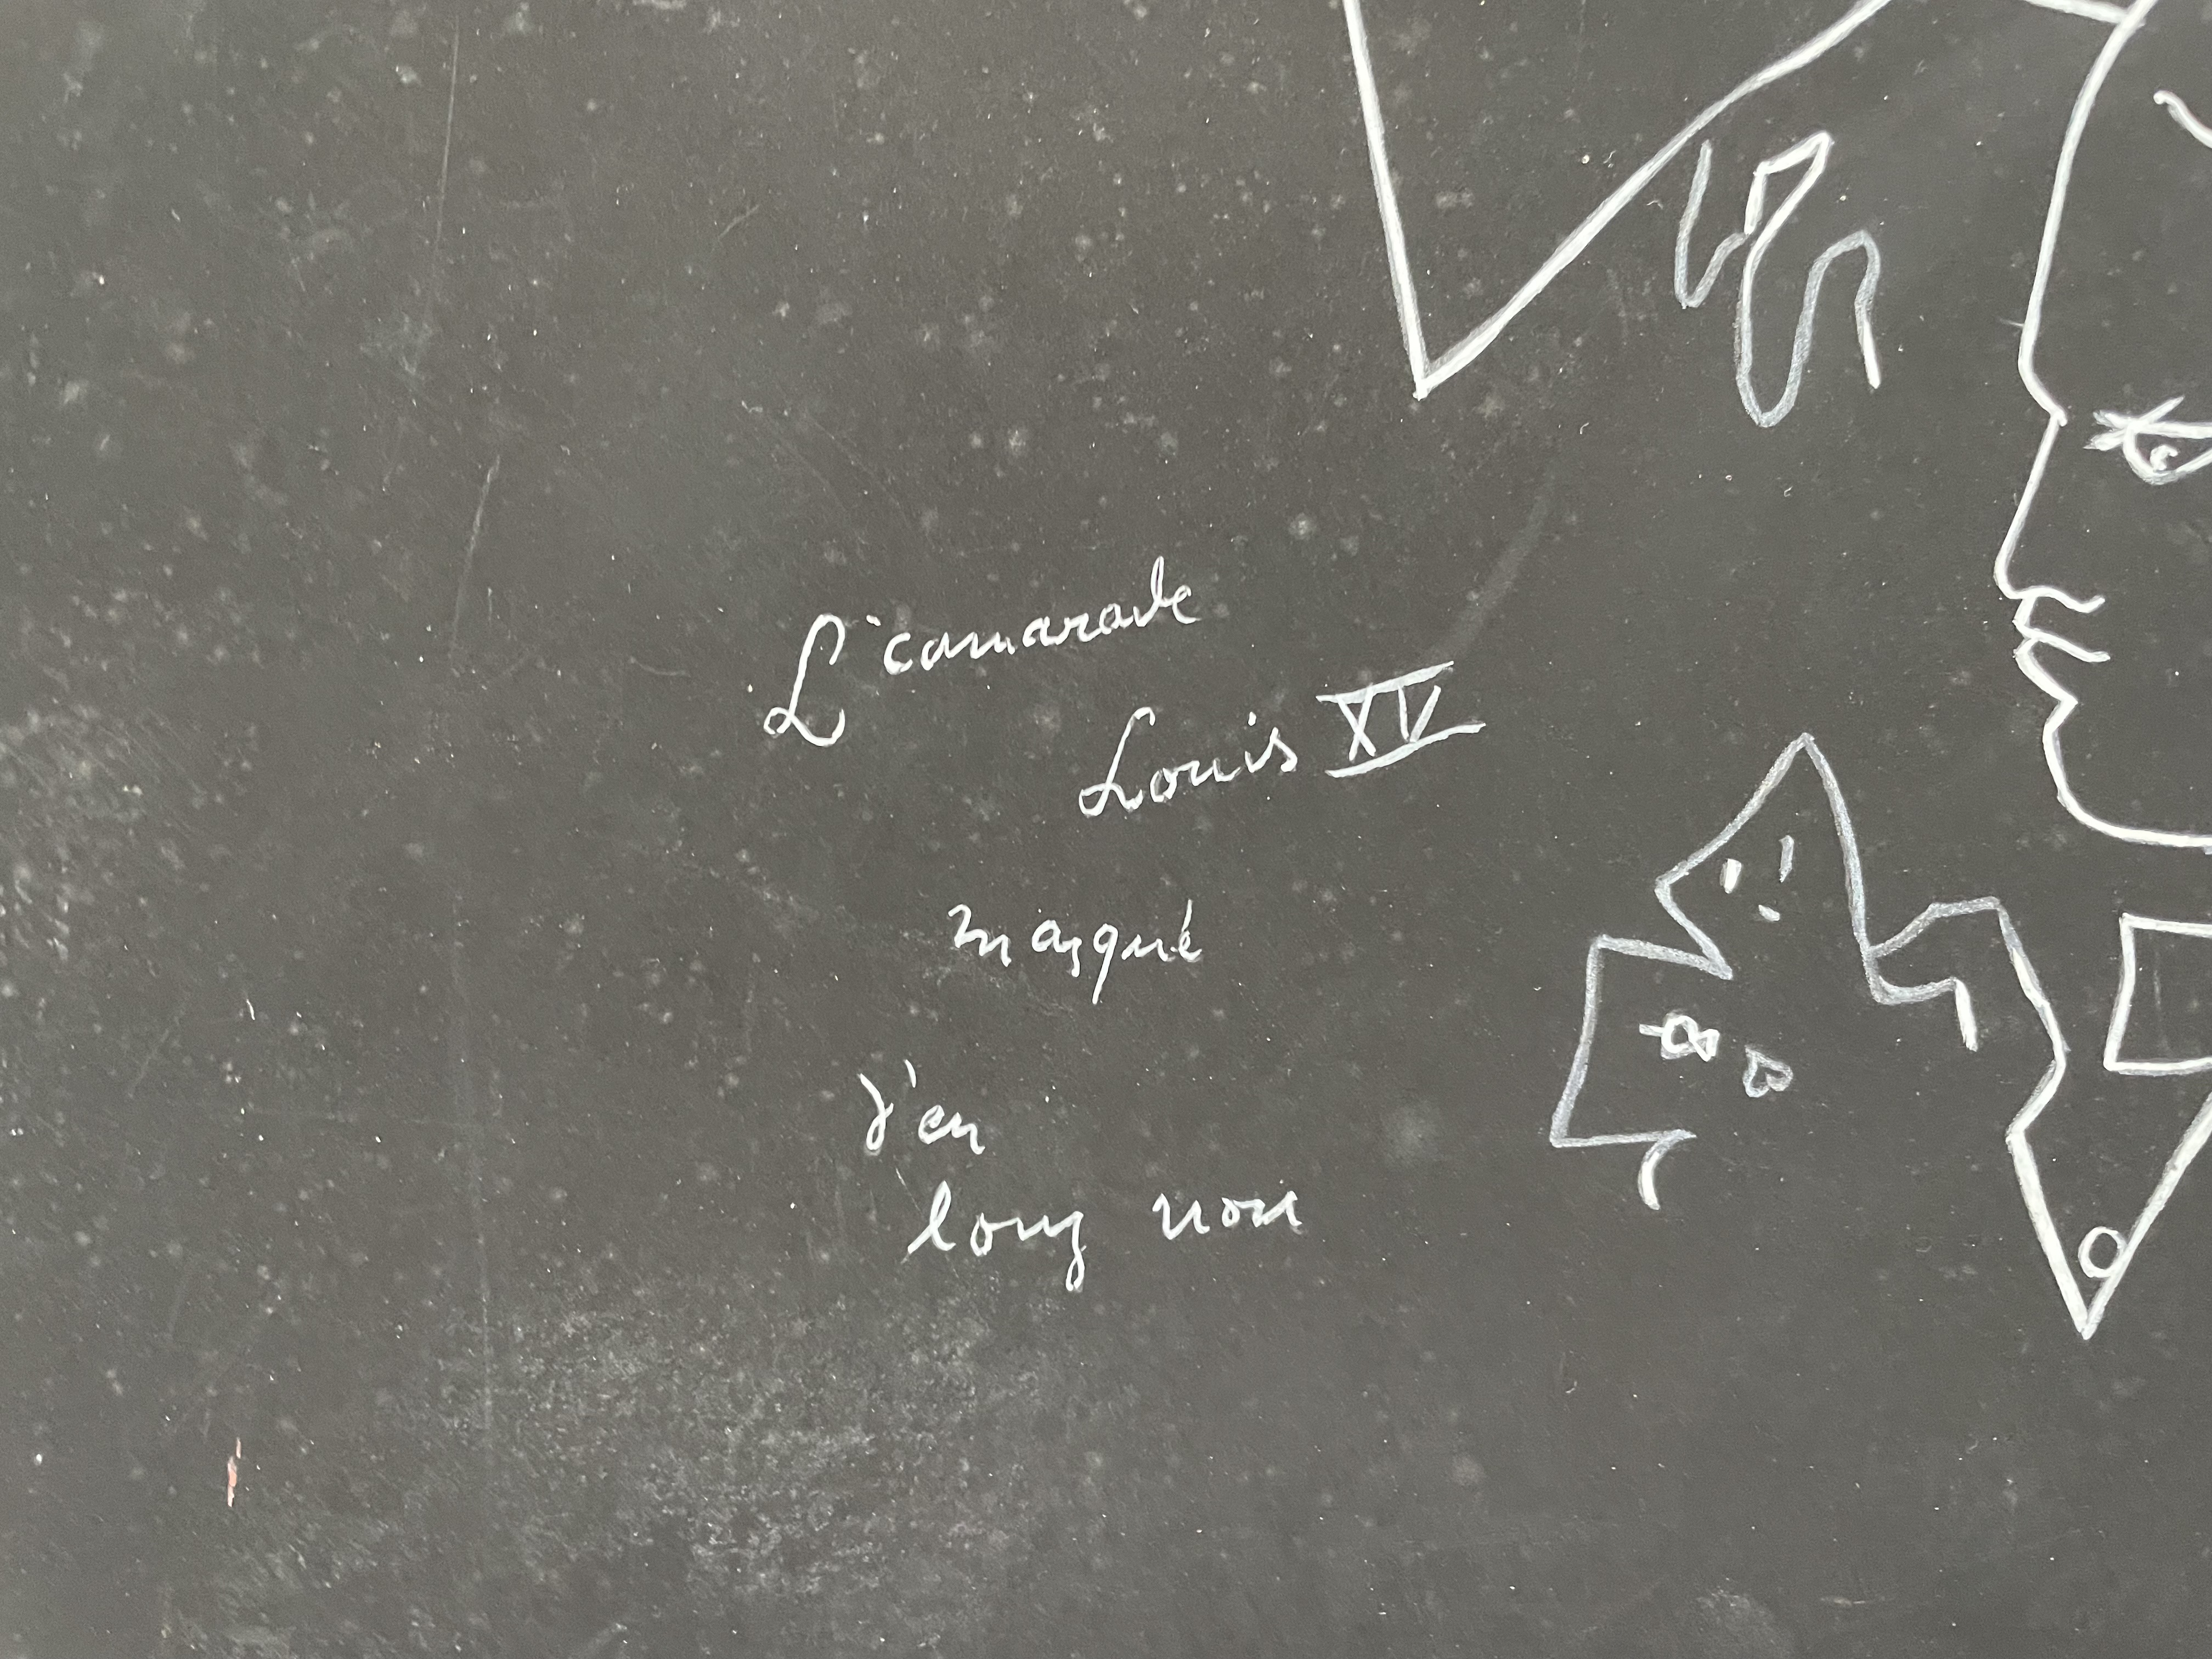 L'camarade
Louis XV
masqué
d'en
long non